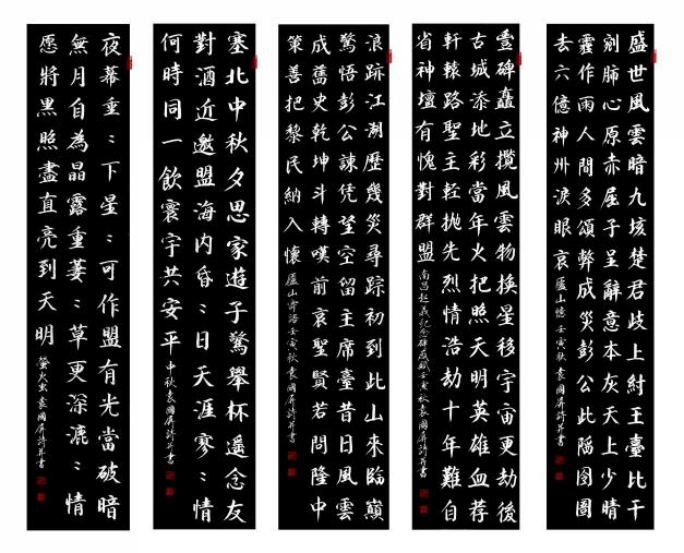 盛世風雲暗九垓楚君歧上紂王臺比干
剜肺心原赤屈子呈辭意本灰天上少晴
靈作雨人間多頌弊成災彭公此陷囹圄
去六億神州淚眼哀
廬山憶 壬寅秋袁國屏詩并書
壹碑矗立攬風雲物換星移宇宙更劫後
古城添地彩當年火把照天明英雄血荐
軒轅路聖主輕拋先烈情浩劫十年難自
省神壇有愧對群盟
南昌起義紀念碑感賦壬寅秋袁國屏詩并書
浪跡江湖歷幾災尋踪初到此山來臨巔
驚悟彭公諫凭望空留主席臺昔日風雲
成舊史乾坤斗轉嘆前哀聖賢若問隆中
策善把黎民納入懷
廬山 壬寅秋袁國屏詩并書
塞北中秋夕思家遊子驚舉杯遥念友
對酒近邀盟海内昏〻日天涯寥〻情
何時同一飲寰宇共安平
中秋袁國屏詩并書
夜幕重〻下星〻可作盟有光當破暗
無月自為晶露重萋〻草更深漉〻情
愿將黑照盡直亮到天明
螢火虫袁國屏詩并書